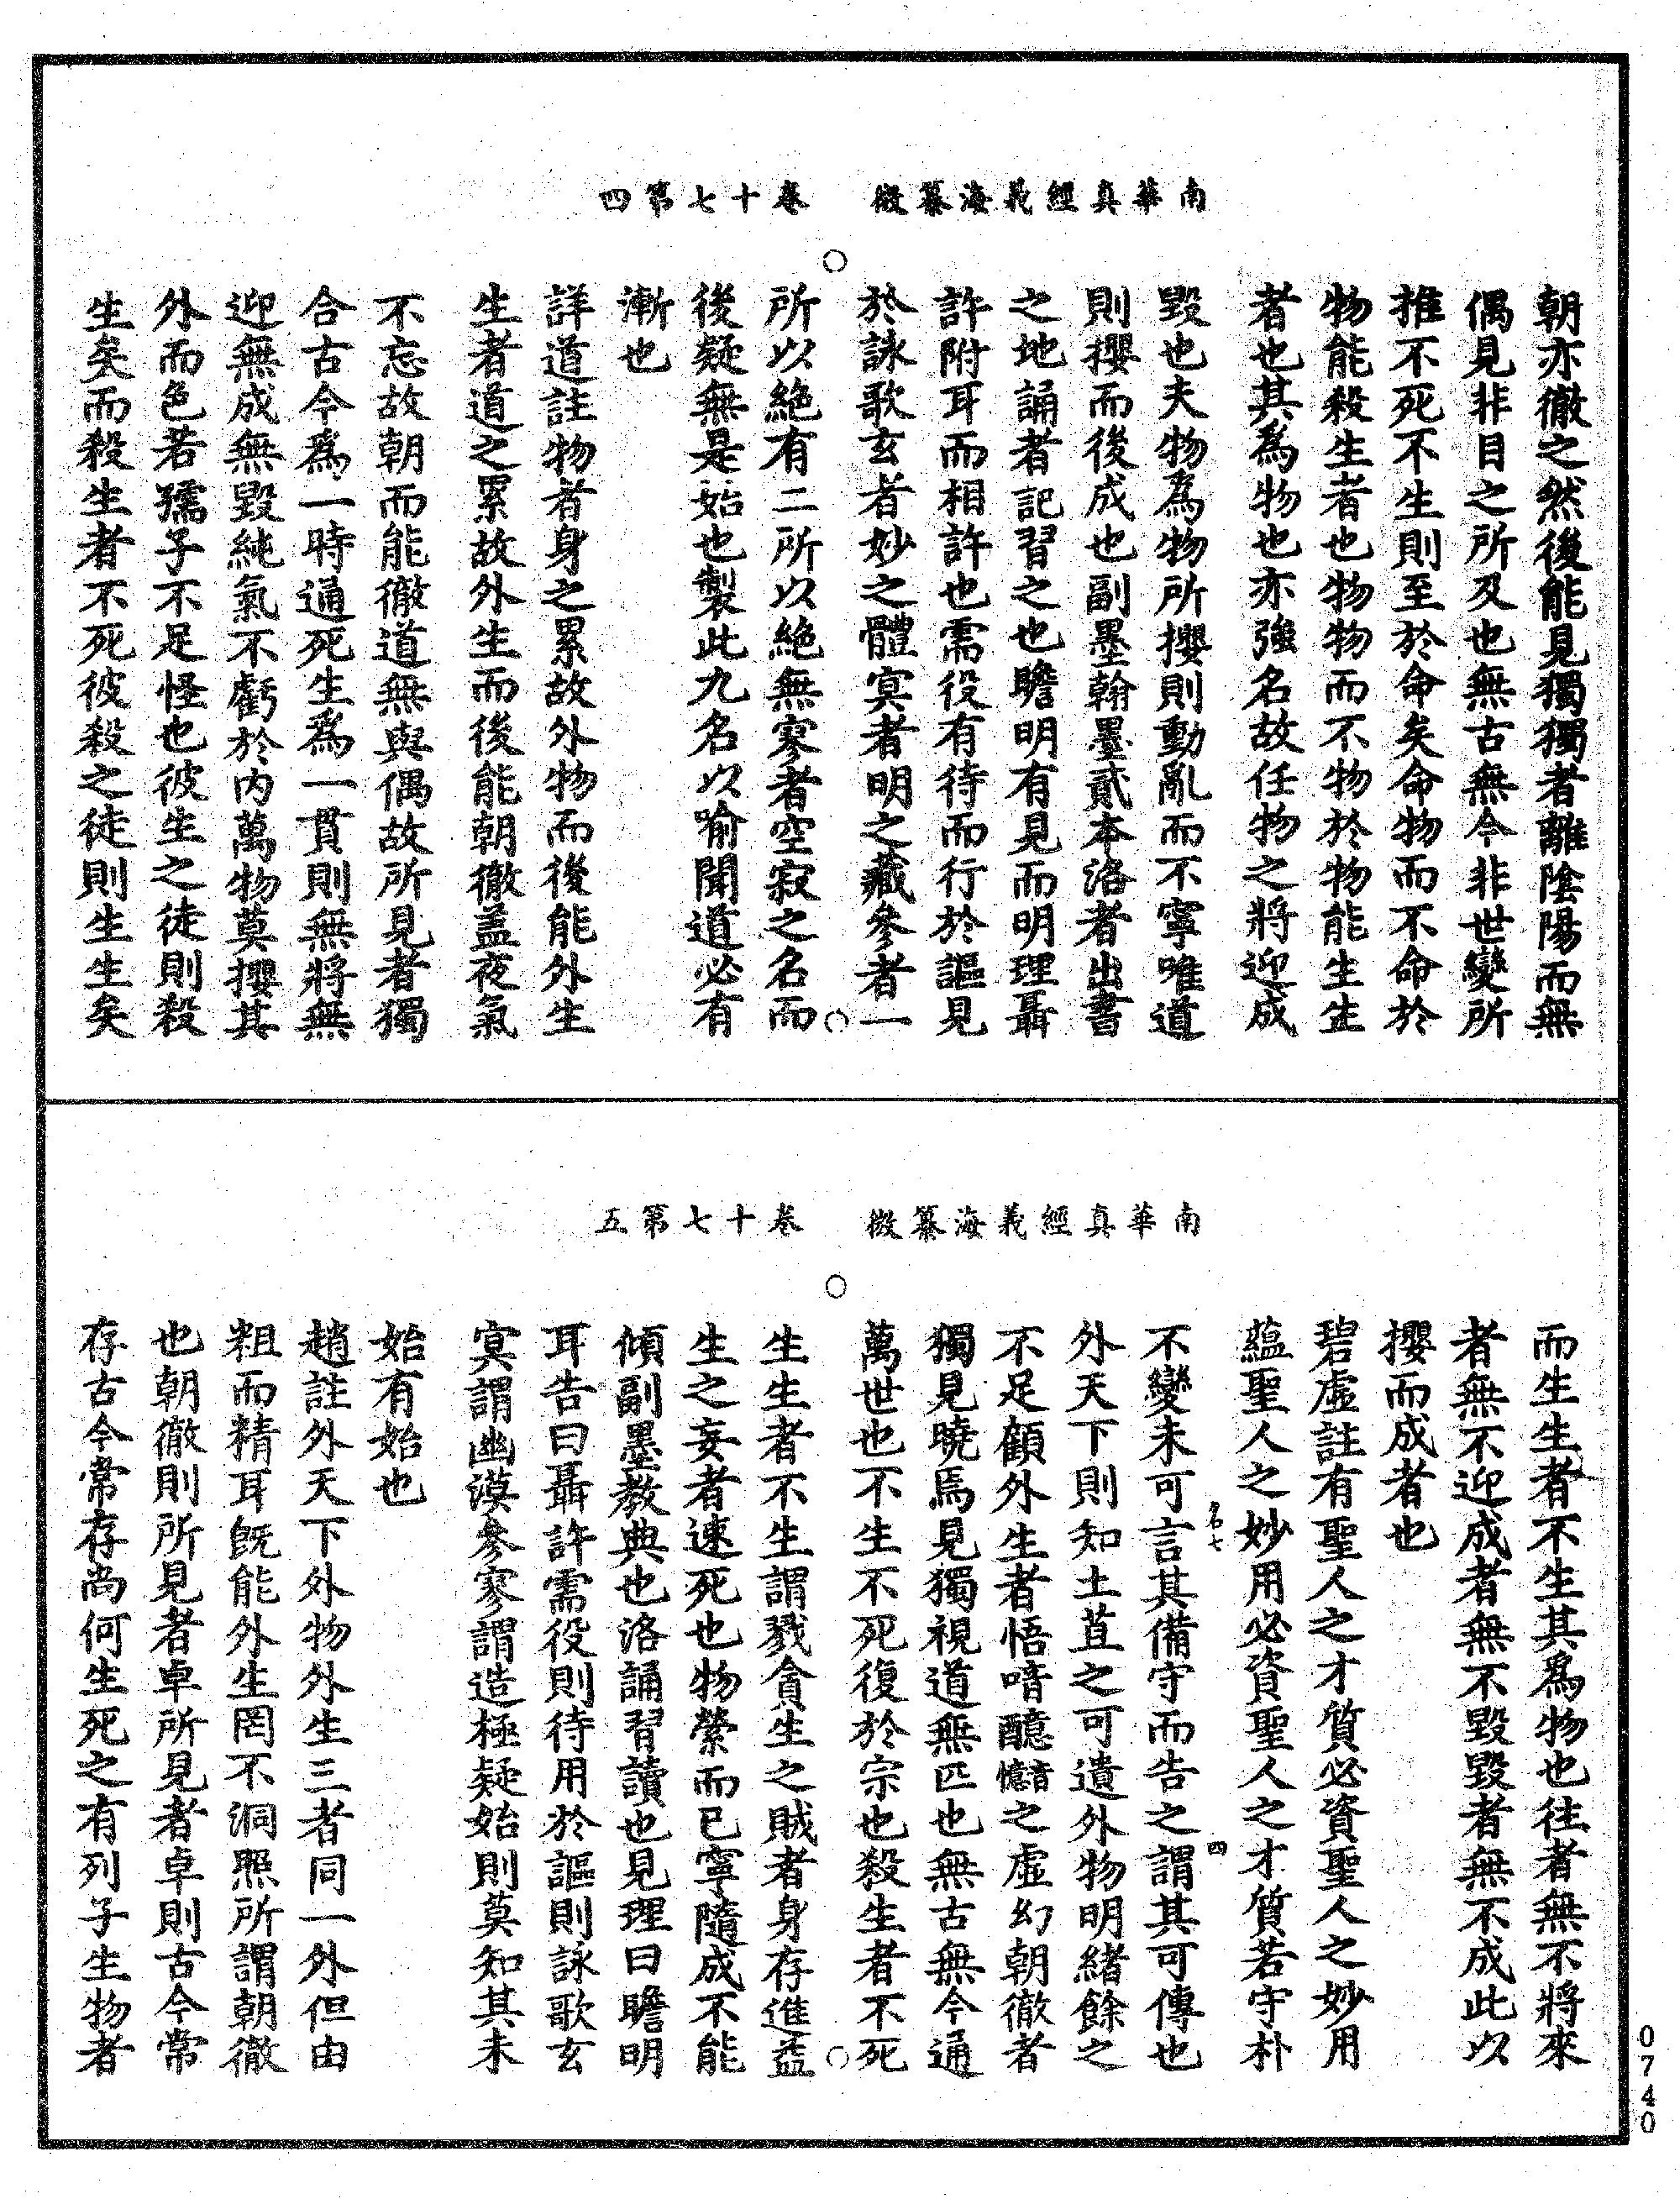 南華真經義海纂微　卷十七第四
朝亦徹之然後能見獨獨者離陰陽而無
偶見非目之所及也無古無今非世變所
推不死不生則至於命矣命物而不命於
物能殺生者也物物而不物於物能生生
者也其為物也亦強名故任物之將迎成
毀也夫物為物所攖則動亂而不寧唯道
則攖而後成也副墨翰墨貳本洛者出書
之地誦者記習之也瞻明有見而明理聶
許附耳而相許也需役有待而行於謳見
於詠歌玄者妙之體冥者明之藏參者一
所以絕有二所以絕無寥者空寂之名而
後疑無是始也製此九名以喻聞道必有
漸也
詳道註物者身之累故外物而後能外生
生者道之累故外生而後能朝徹盖夜氣
不忘故朝而能徹道無與偶故所見者獨
合古今為一時通死生為一貫則無將無
迎無成無毀純氣不虧於內萬物莫攖其
外而色若孺子不足怪也彼生之徒則殺
生矣而殺生者不死彼殺之徒則生生矣
南華真經義海纂微　卷十七第五
而生生者不生其為物也往者無不將來
者無不迎成者無不毀毀者無不成此以
攖而成者也
碧虛註有聖人之才質必資聖人之妙用
蘊聖人之妙用必資聖人之才質若守朴
不變未可言其備守而告之謂其可傳也
名七
四
外天下則知土苴之可遺外物明緒餘之
不足顧外生者悟喑醷音憶之虛幻朝徹者
獨見曉焉見獨視道無匹也無古無今通
萬世也不生不死復於宗也殺生者不死
生生者不生謂戮貪生之賊者身存進益
生之妄者速死也物縈而已寧隨成不能
傾副墨教典也洛誦習讀也見理曰瞻明
耳告曰聶許需役則待用於謳則詠歌玄
冥謂幽漠參寥謂造極疑始則莫知其未
始有始也
趙註外天下外物外生三者同一外但由
粗而精耳既能外生罔不洞照所謂朝徹
也朝徹則所見者卓所見者卓則古今常
存古今常存尚何生死之有列子生物者
0740